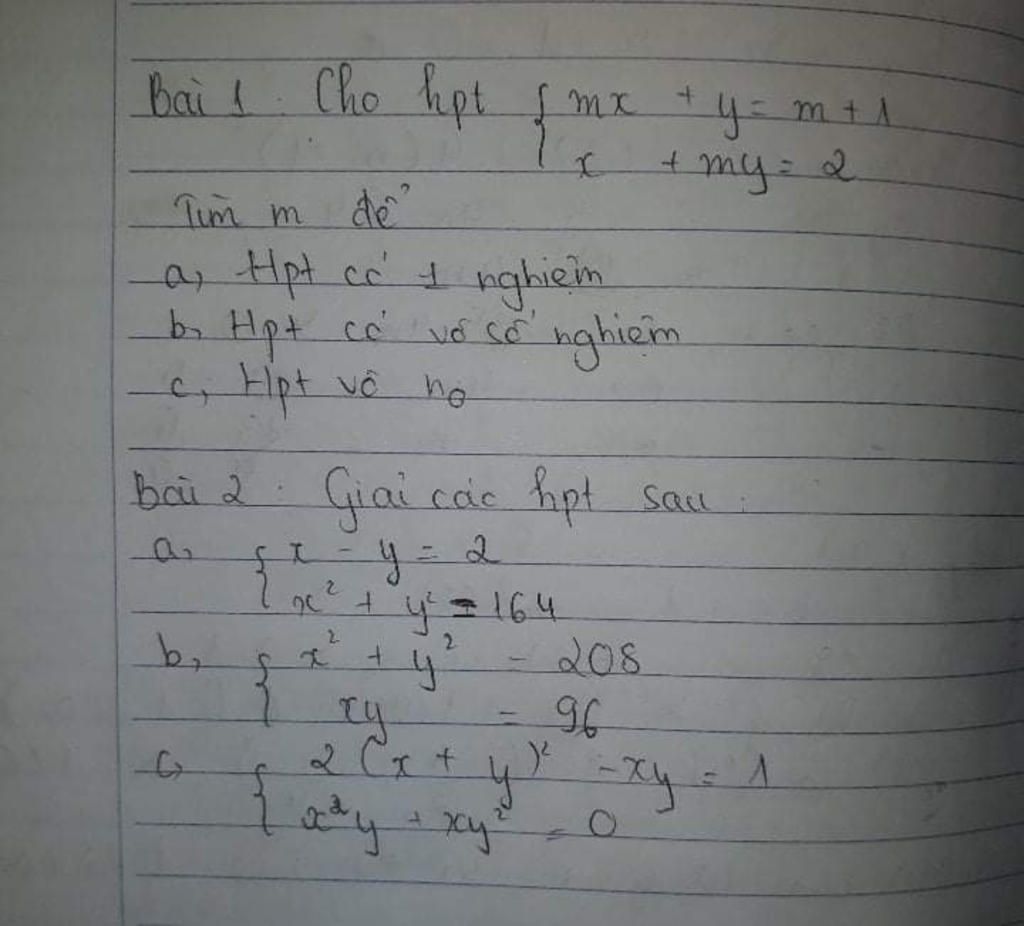 Bài 1. Cho hpt { mx + y = m + 1
x + my = 2
Tìm m để
a, Hpt có 1 nghiệm
b, Hpt có vô số nghiệm
c, Hpt vô n₀
Bài 2 : Giải các hpt sau :
a, { x - y = 2
x² + y² = 164
b, { x² + y² = 208
xy = 96
c, { 2(x + y)² - xy = 1
x²y + xy² = 0